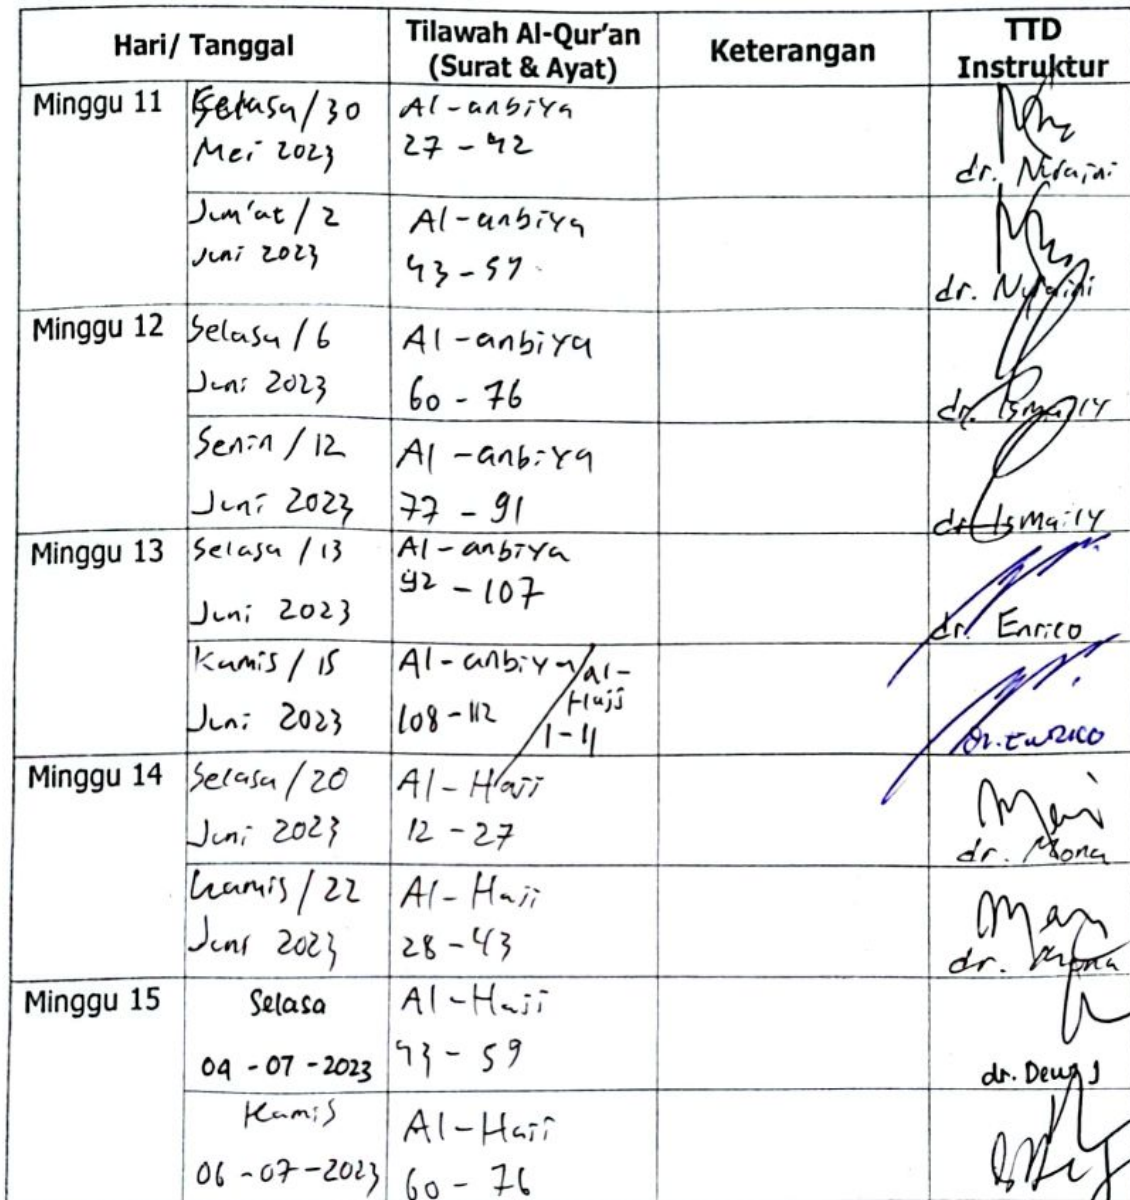 Hari/ Tanggal
Tilawah Al-Qur'an
(Surat & Ayat)
Keterangan
TTD
Instruktur
Minggu 11
Selasa / 30
Mei 2023
Al-anbiya
27 - 42
dr. Nuraini
Jum'at / 2
Juni 2023
Al-anbiya
43 - 59
dr. Nuraini
Minggu 12
Selasa / 6
Juni 2023
Al-anbiya
60 - 76
dr. Ismaily
Senin / 12
Juni 2023
Al-anbiya
77 - 91
dr. Ismaily
Minggu 13
Selasa / 13
Juni 2023
Al-anbiya
92 - 107
dr. Enrico
Kamis / 15
Juni 2023
Al-anbiya/al-
Hajj
108 - 112
1 - 11
dr. Enrico
Minggu 14
Selasa / 20
Juni 2023
Al-Hajj
12 - 27
dr. Mona
Kamis / 22
Juni 2023
Al-Hajj
28 - 43
dr. Mona
Minggu 15
Selasa
04 - 07 - 2023
Al-Hajj
43 - 59
dr. Dewi J
Kamis
06 - 07 - 2023
Al-Hajj
60 - 76